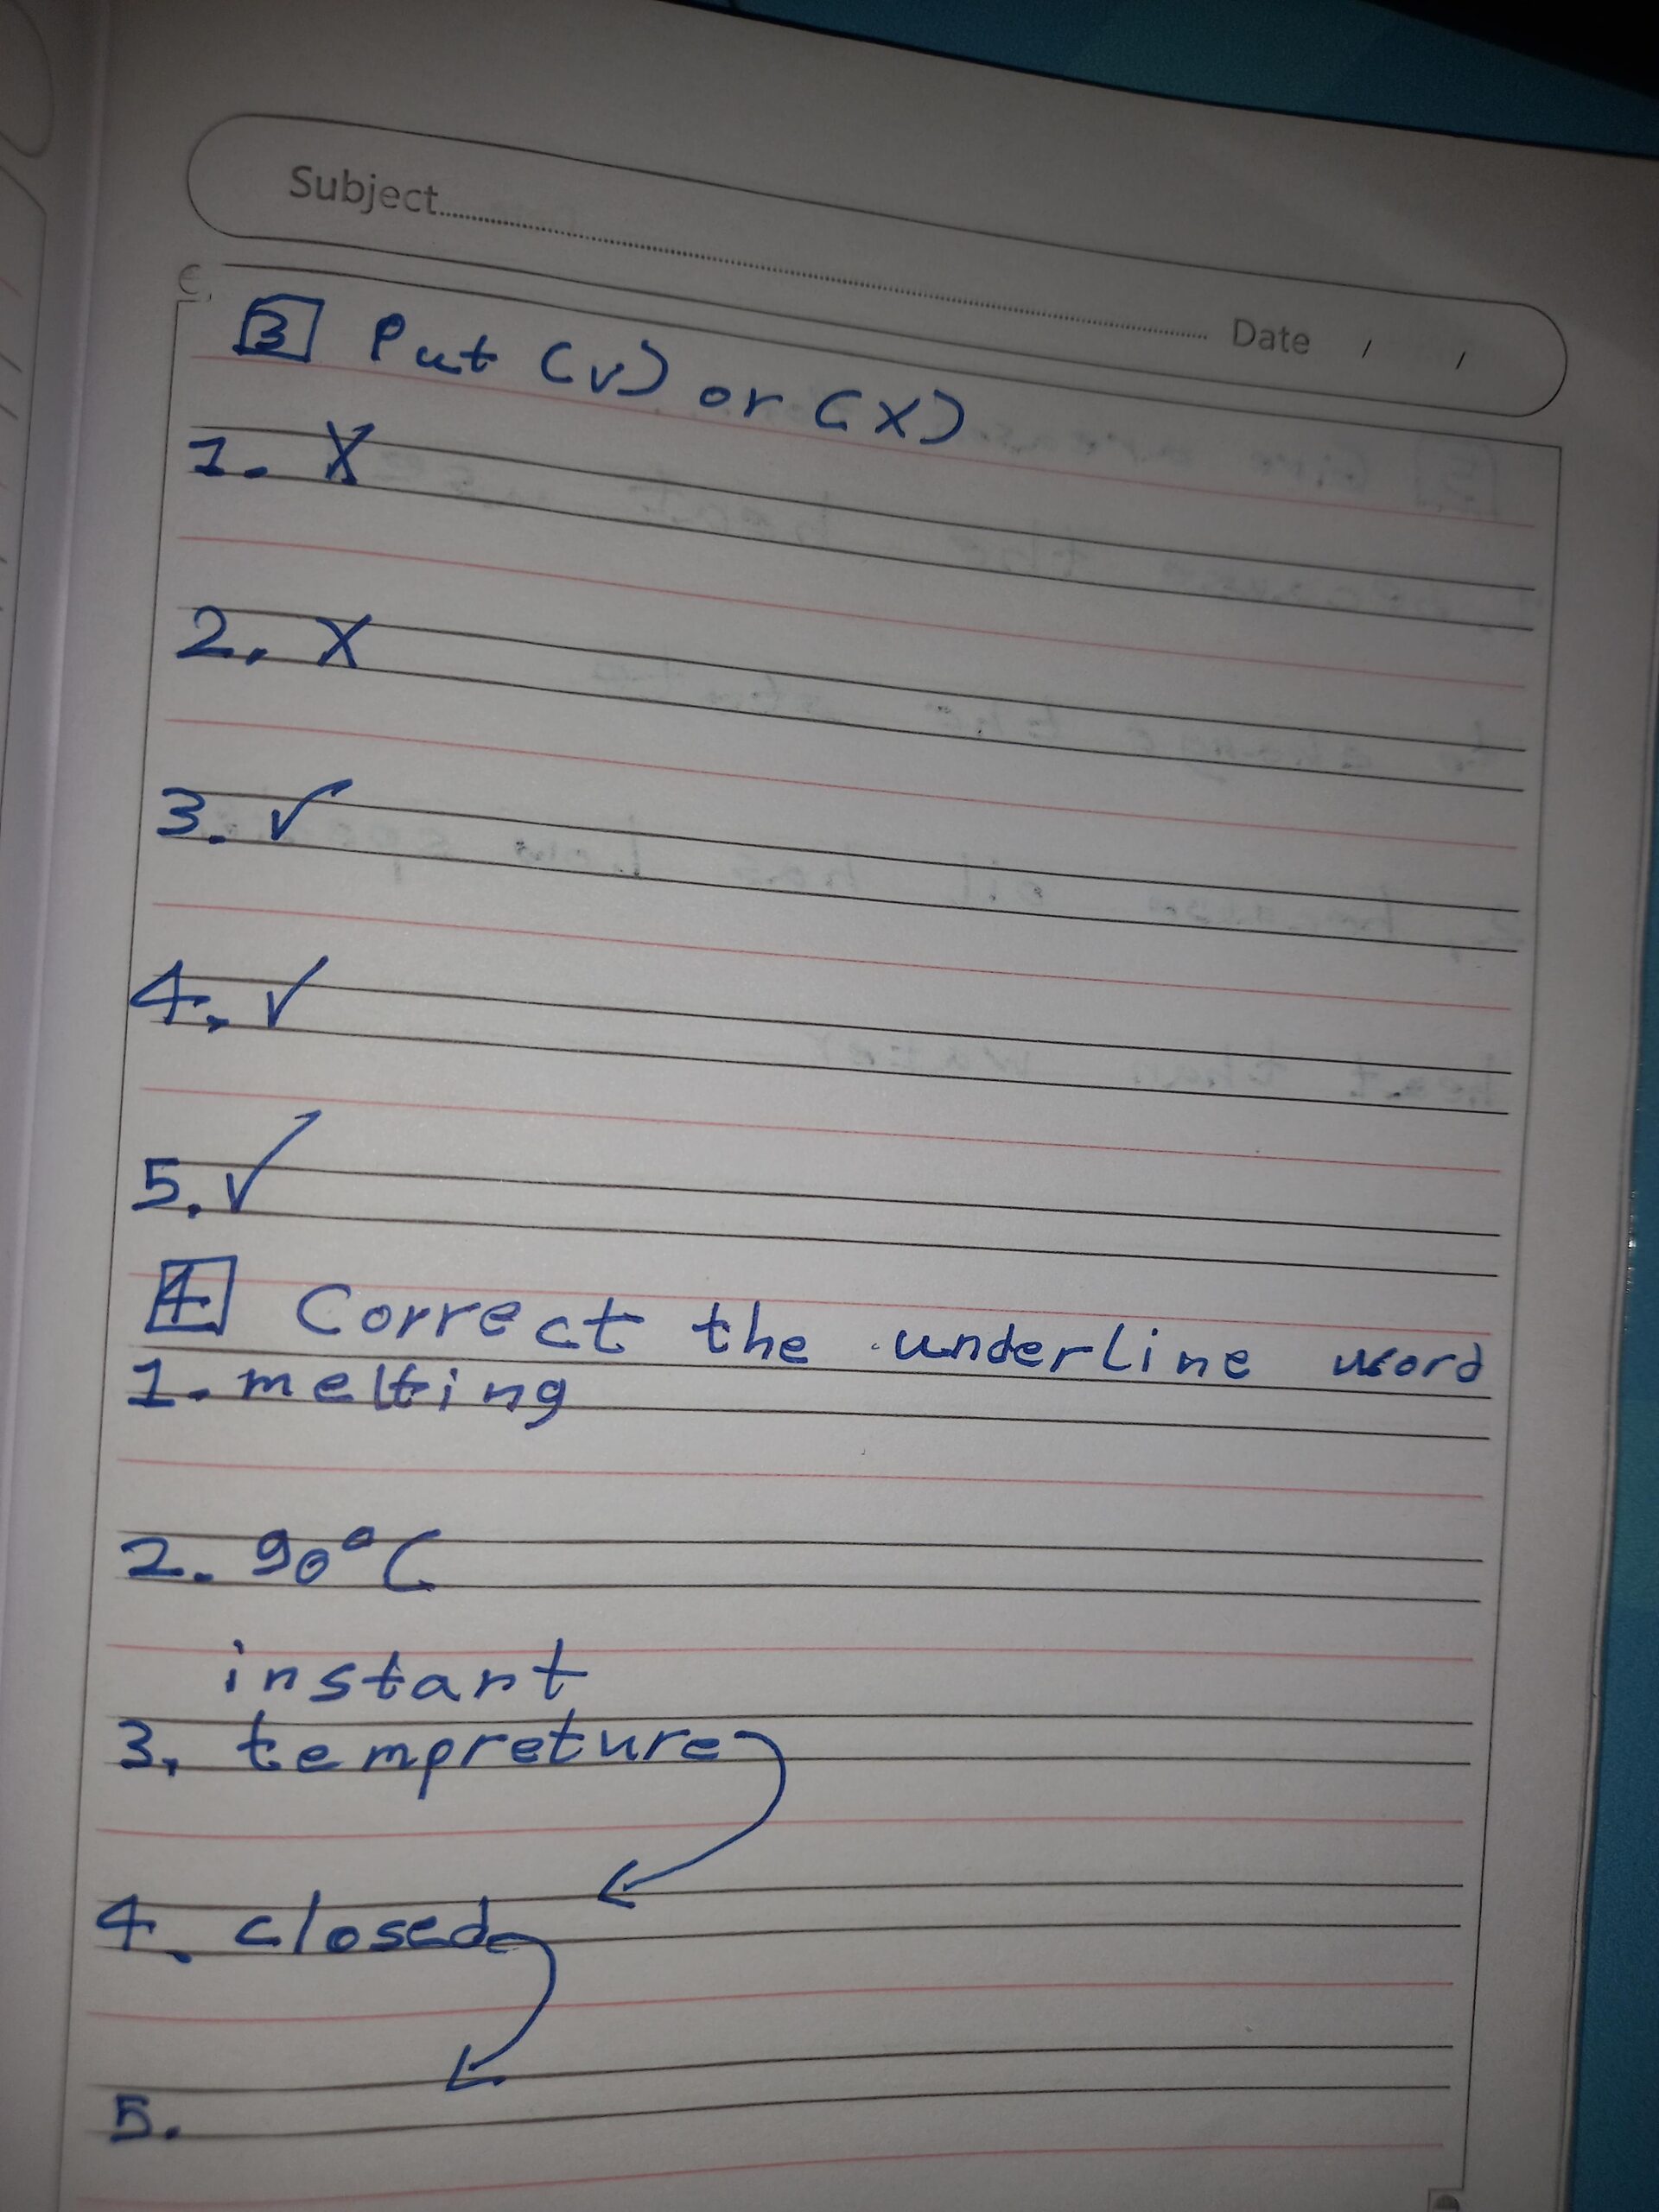 Subject
Date / /
3 Put (√) or (X)
1. X
2. X
3. ✓
4. ✓
5. ✓
4 Correct the underline word
1. melting
2. 90°C
instant
3. tempreture
4. closed
5.